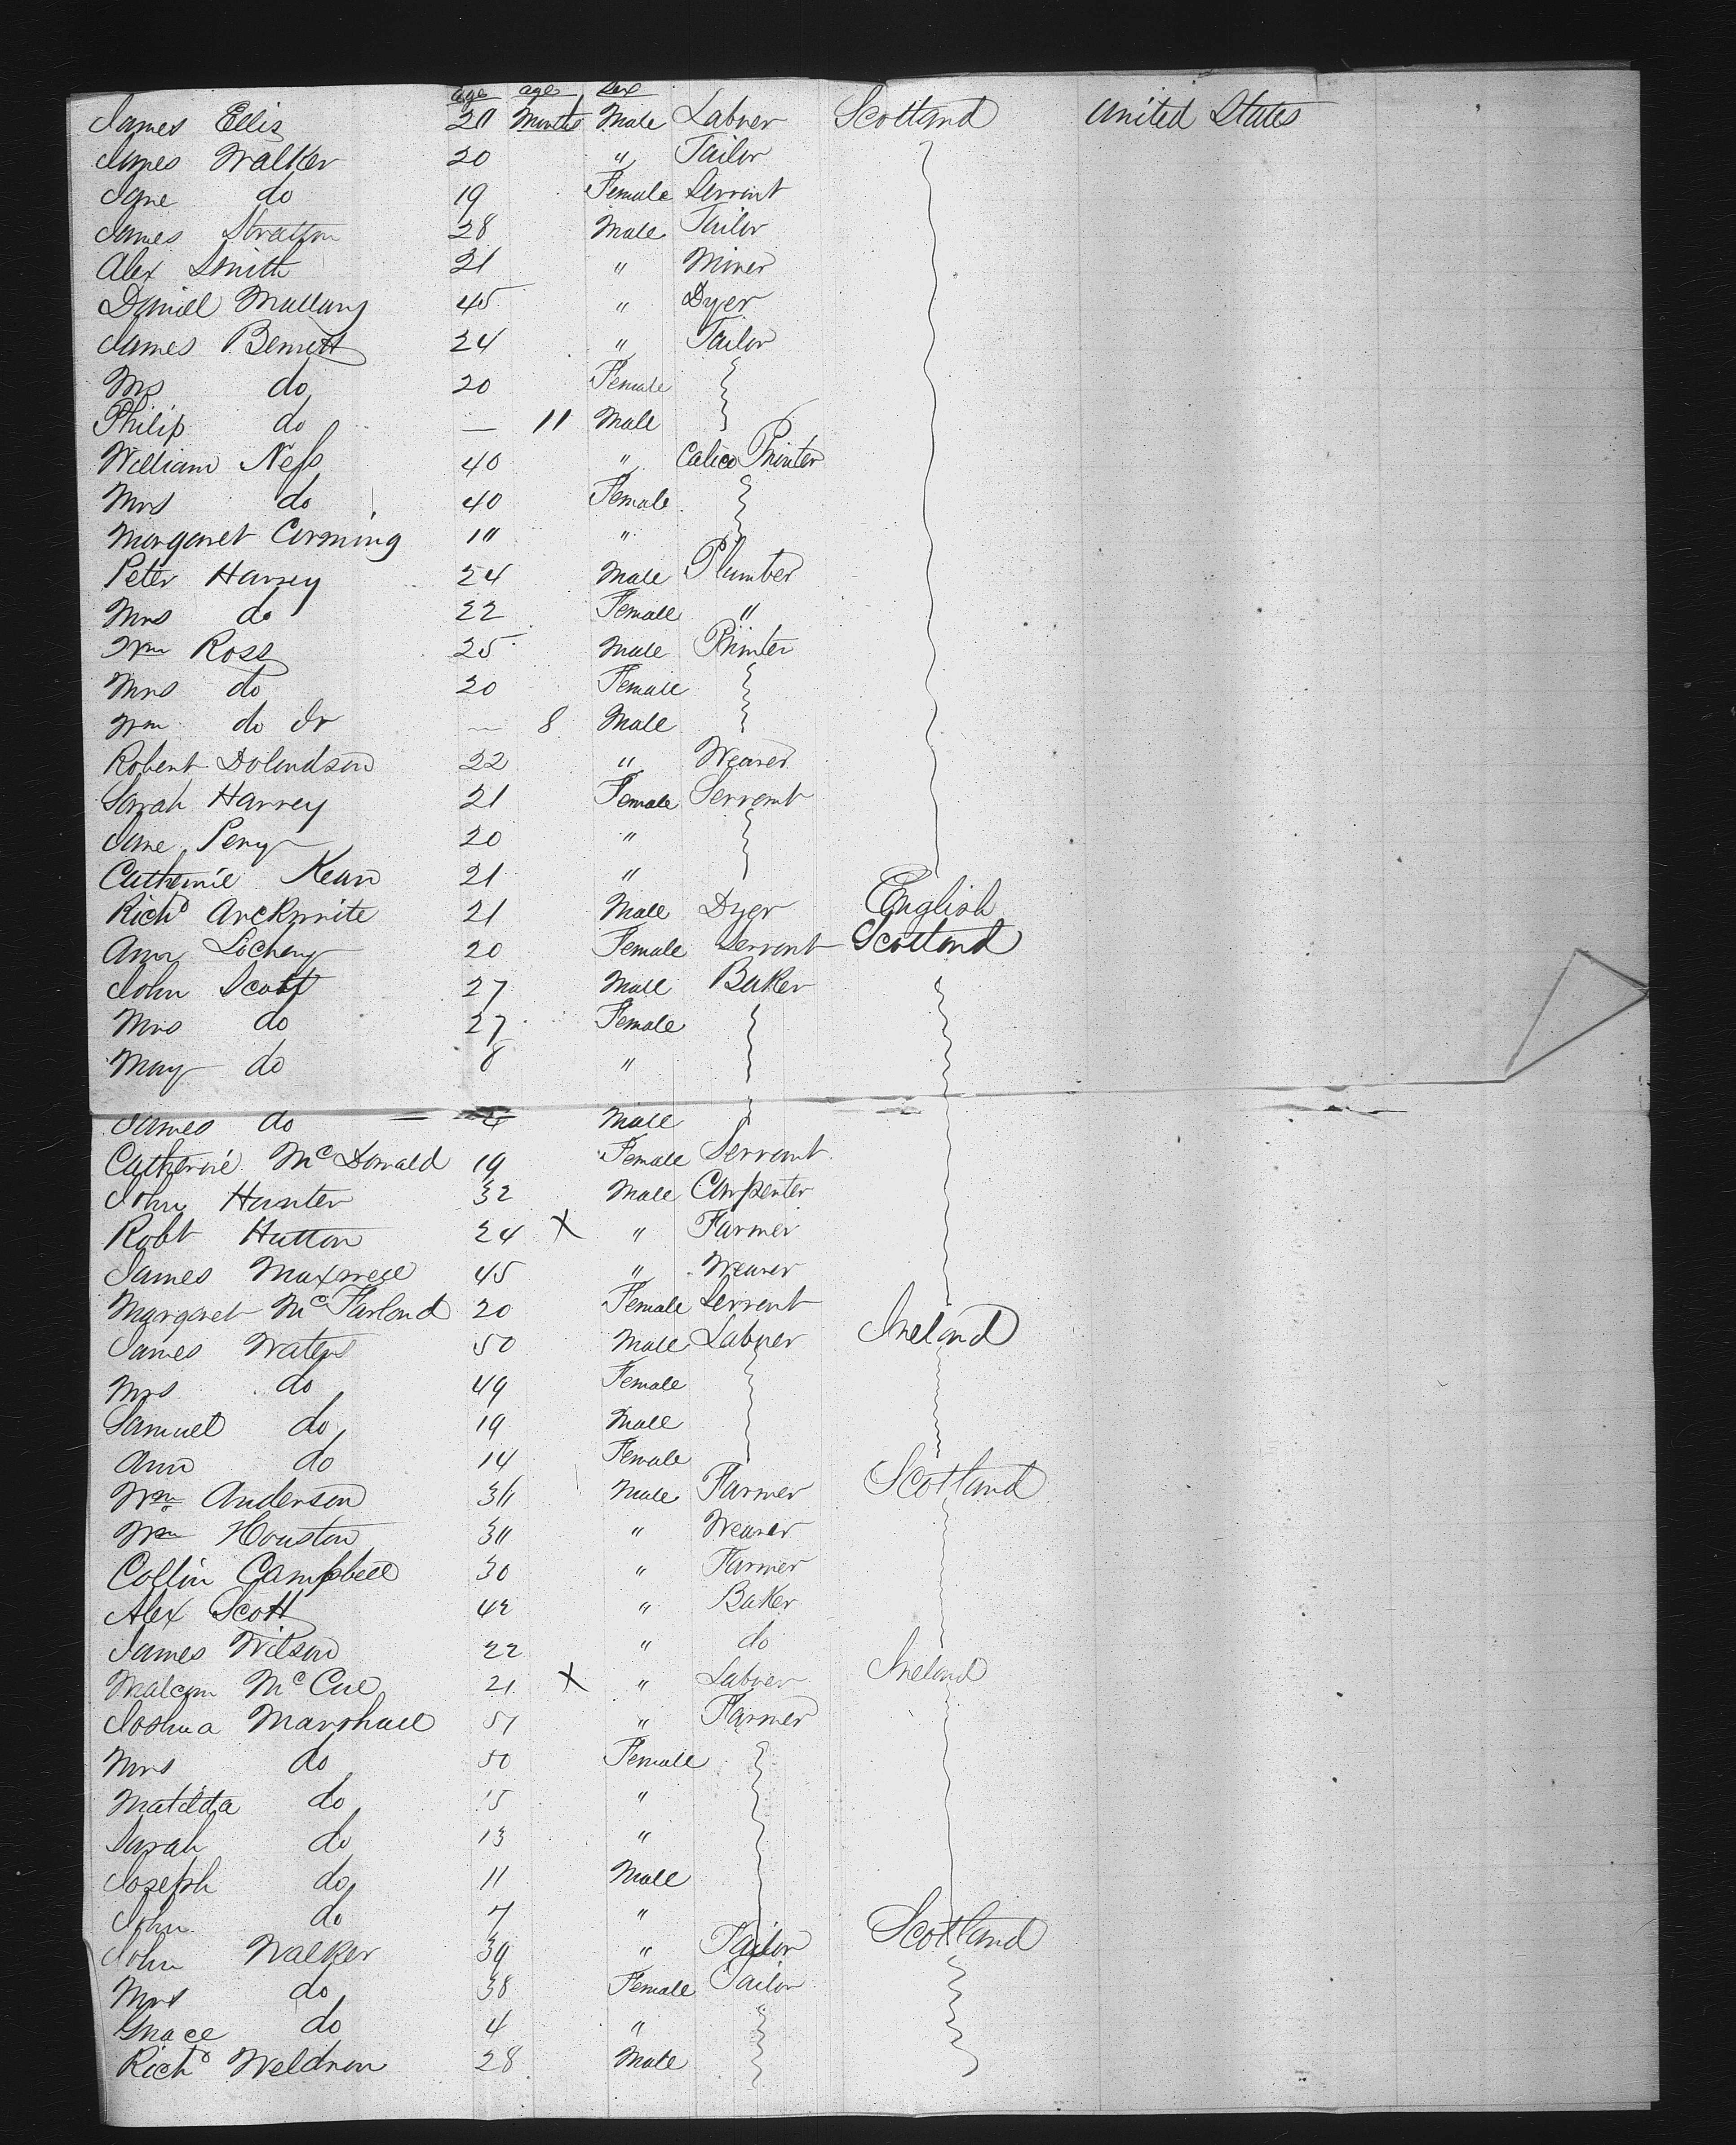 age age Sex
James Ellis 20 Months Male Labner Scotland United States
James Walker 20 " Tailor
Jane do 19 Female Servant
James Stratton 28 Male Tailor
Alex Smith 21 " Miner
Daniel Mullany 45 " Dyer
James Bennett 24 " Tailor
Ms do 20 Female
Philip do — 11 Male
William Ness 40 " Calico Printer
Mrs do 40 Female
Margaret Corming "
Peter Harvey 24 Male Plumber
Mrs do 22 Female "
Wm Ross 25 Male Printer
Mrs do 20 Female
Wm do Jr — 8 Male
Robert Dolandson 22 " Weaver
Sarah Harvey 21 Female Servant
Jane Pery 20 "
Catherine Kean 21 "
Richd Arckwrite 21 Male Dyer English
Ann Locheny 20 Female Servant Scotland
John Scott 27 Male Baker
Mrs do 27 Female
May do 8 "
James do Male
Catherine McDonald 19 Female Servant
John Hunter 32 Male Carpenter
Robt Hutton 24 X " Farmer
James Maxwell 45 " Weaver
Margaret McFarland 20 Female Servant
James Waters 50 Male Labner Ireland
Mrs do 49 Female
Samuel do 19 Male
Ann do 14 Female
Wm Anderson Male Farmer Scotland
Wm Houston " Weaver
Collin Campbell 30 " Farmer
Alex Scott 42 " Baker
James Wilson 22 " do
Malcom McCue 21 X " Labner Ireland
Joshua Marshall 51 " Farmer
Mrs do 50 Female
Matilda do 15 "
Sarah do 13 "
Joseph do 11 Male
John do 7 "
John Walker 39 " Tailor Scotland
Mrs do 38 Female Tailor
Grace do 4 " "
Richd Weldron 28 Male